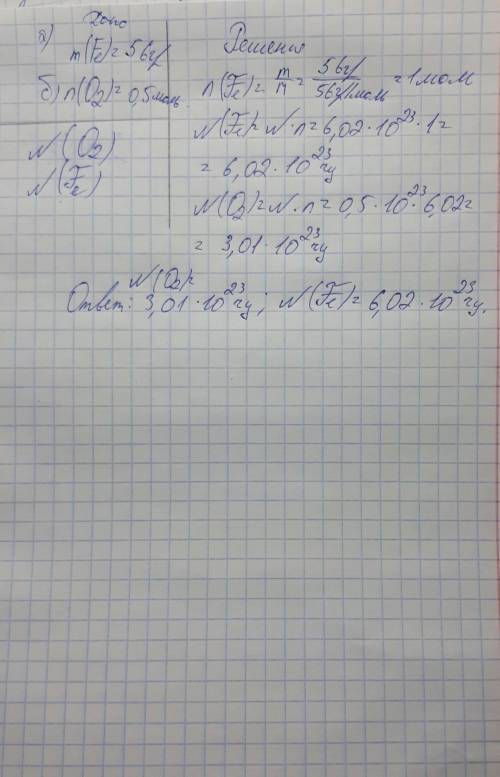 Дано
а) m(Fe)=56г
б) n(O₂)=0,5моль
N(O₂)
N(Fe)
Решения
n(Fe)= m/M = 56г/56г/моль =1мол
N(Fe)= N·n=6,02·10²³·1=
= 6,02·10²³
N(O₂)=N·n=0,5·10²³·6,02=
= 3,01·10²³
N(O₂)=
Ответ: 3,01·10²³; N(Fe)=6,02·10²³